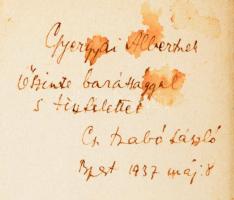 Gyergyai Albertnek
őszinte barátsággal
s tisztelettel
Cs. Szabó László
Bpest 1937 máj. 8